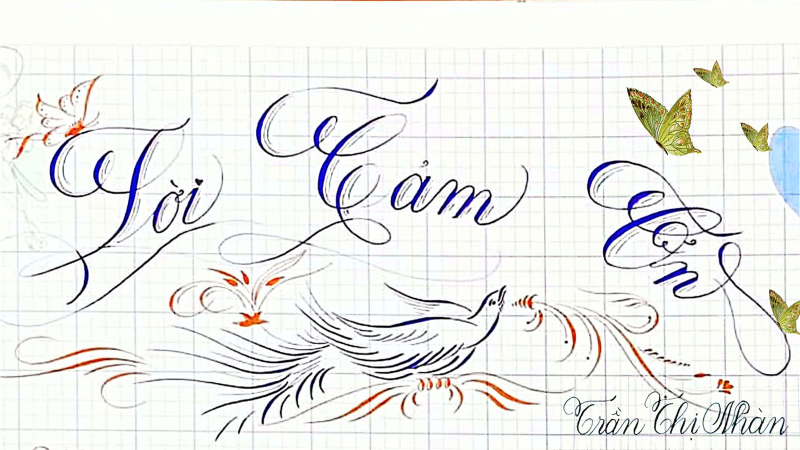 Lời Cảm Ơn
Trần Thị Nhàn